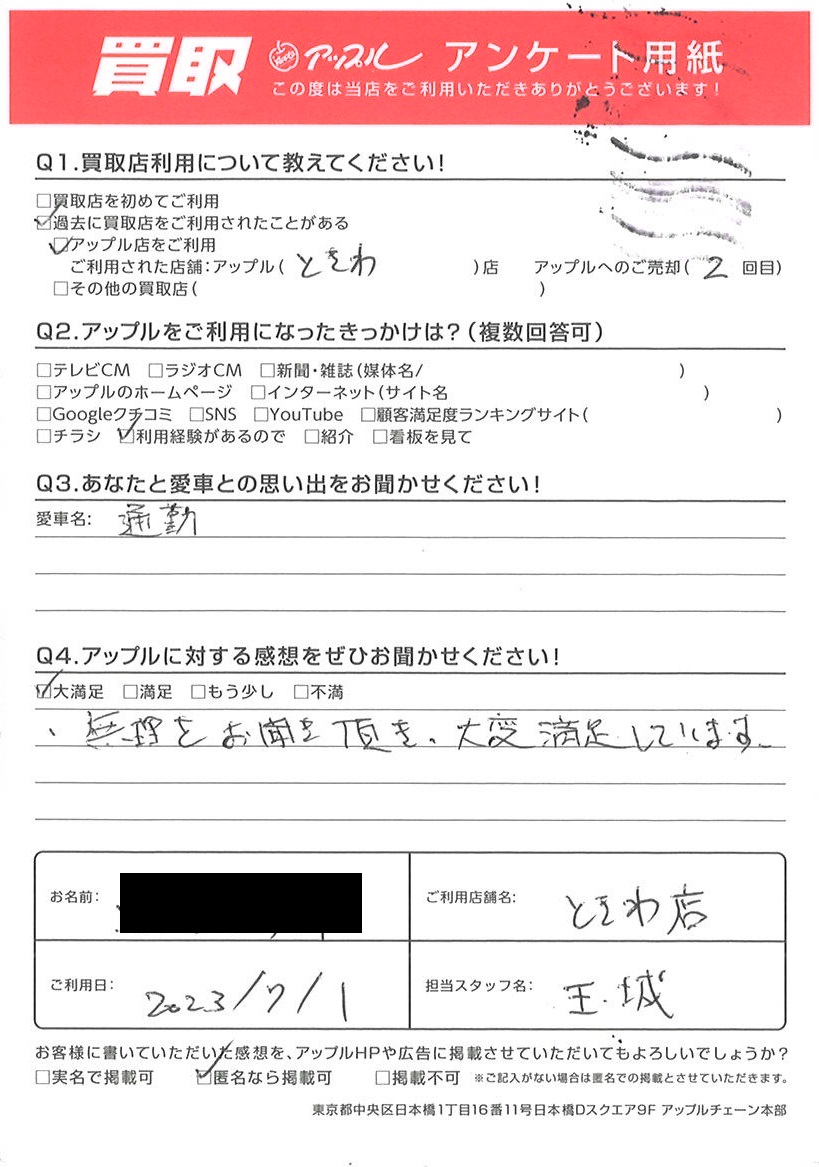 買取 アップル アンケート用紙
この度は当店をご利用いただきありがとうございます!
Q1.買取店利用について教えてください!
□買取店を初めてご利用
☑過去に買取店をご利用されたことがある
☑アップル店をご利用
ご利用された店舗:アップル(ときわ)店 アップルへのご売却(2回目)
□その他の買取店( )
Q2.アップルをご利用になったきっかけは?(複数回答可)
□テレビCM □ラジオCM □新聞・雑誌(媒体名/ )
□アップルのホームページ □インターネット(サイト名 )
□Googleクチコミ □SNS □YouTube □顧客満足度ランキングサイト( )
□チラシ ☑利用経験があるので □紹介 □看板を見て
Q3.あなたと愛車との思い出をお聞かせください!
愛車名: 通勤
Q4.アップルに対する感想をぜひお聞かせください!
☑大満足 □満足 □もう少し □不満
、無理をお聞き頂き、大変満足しています。
お名前:
ご利用店舗名: ときわ店
ご利用日: 2023/7/1
担当スタッフ名: 玉城
お客様に書いていただいた感想を、アップルHPや広告に掲載させていただいてもよろしいでしょうか?
□実名で掲載可 ☑匿名なら掲載可 □掲載不可 ※ご記入がない場合は匿名での掲載とさせていただきます。
東京都中央区日本橋1丁目16番11号日本橋Dスクエア9F アップルチェーン本部